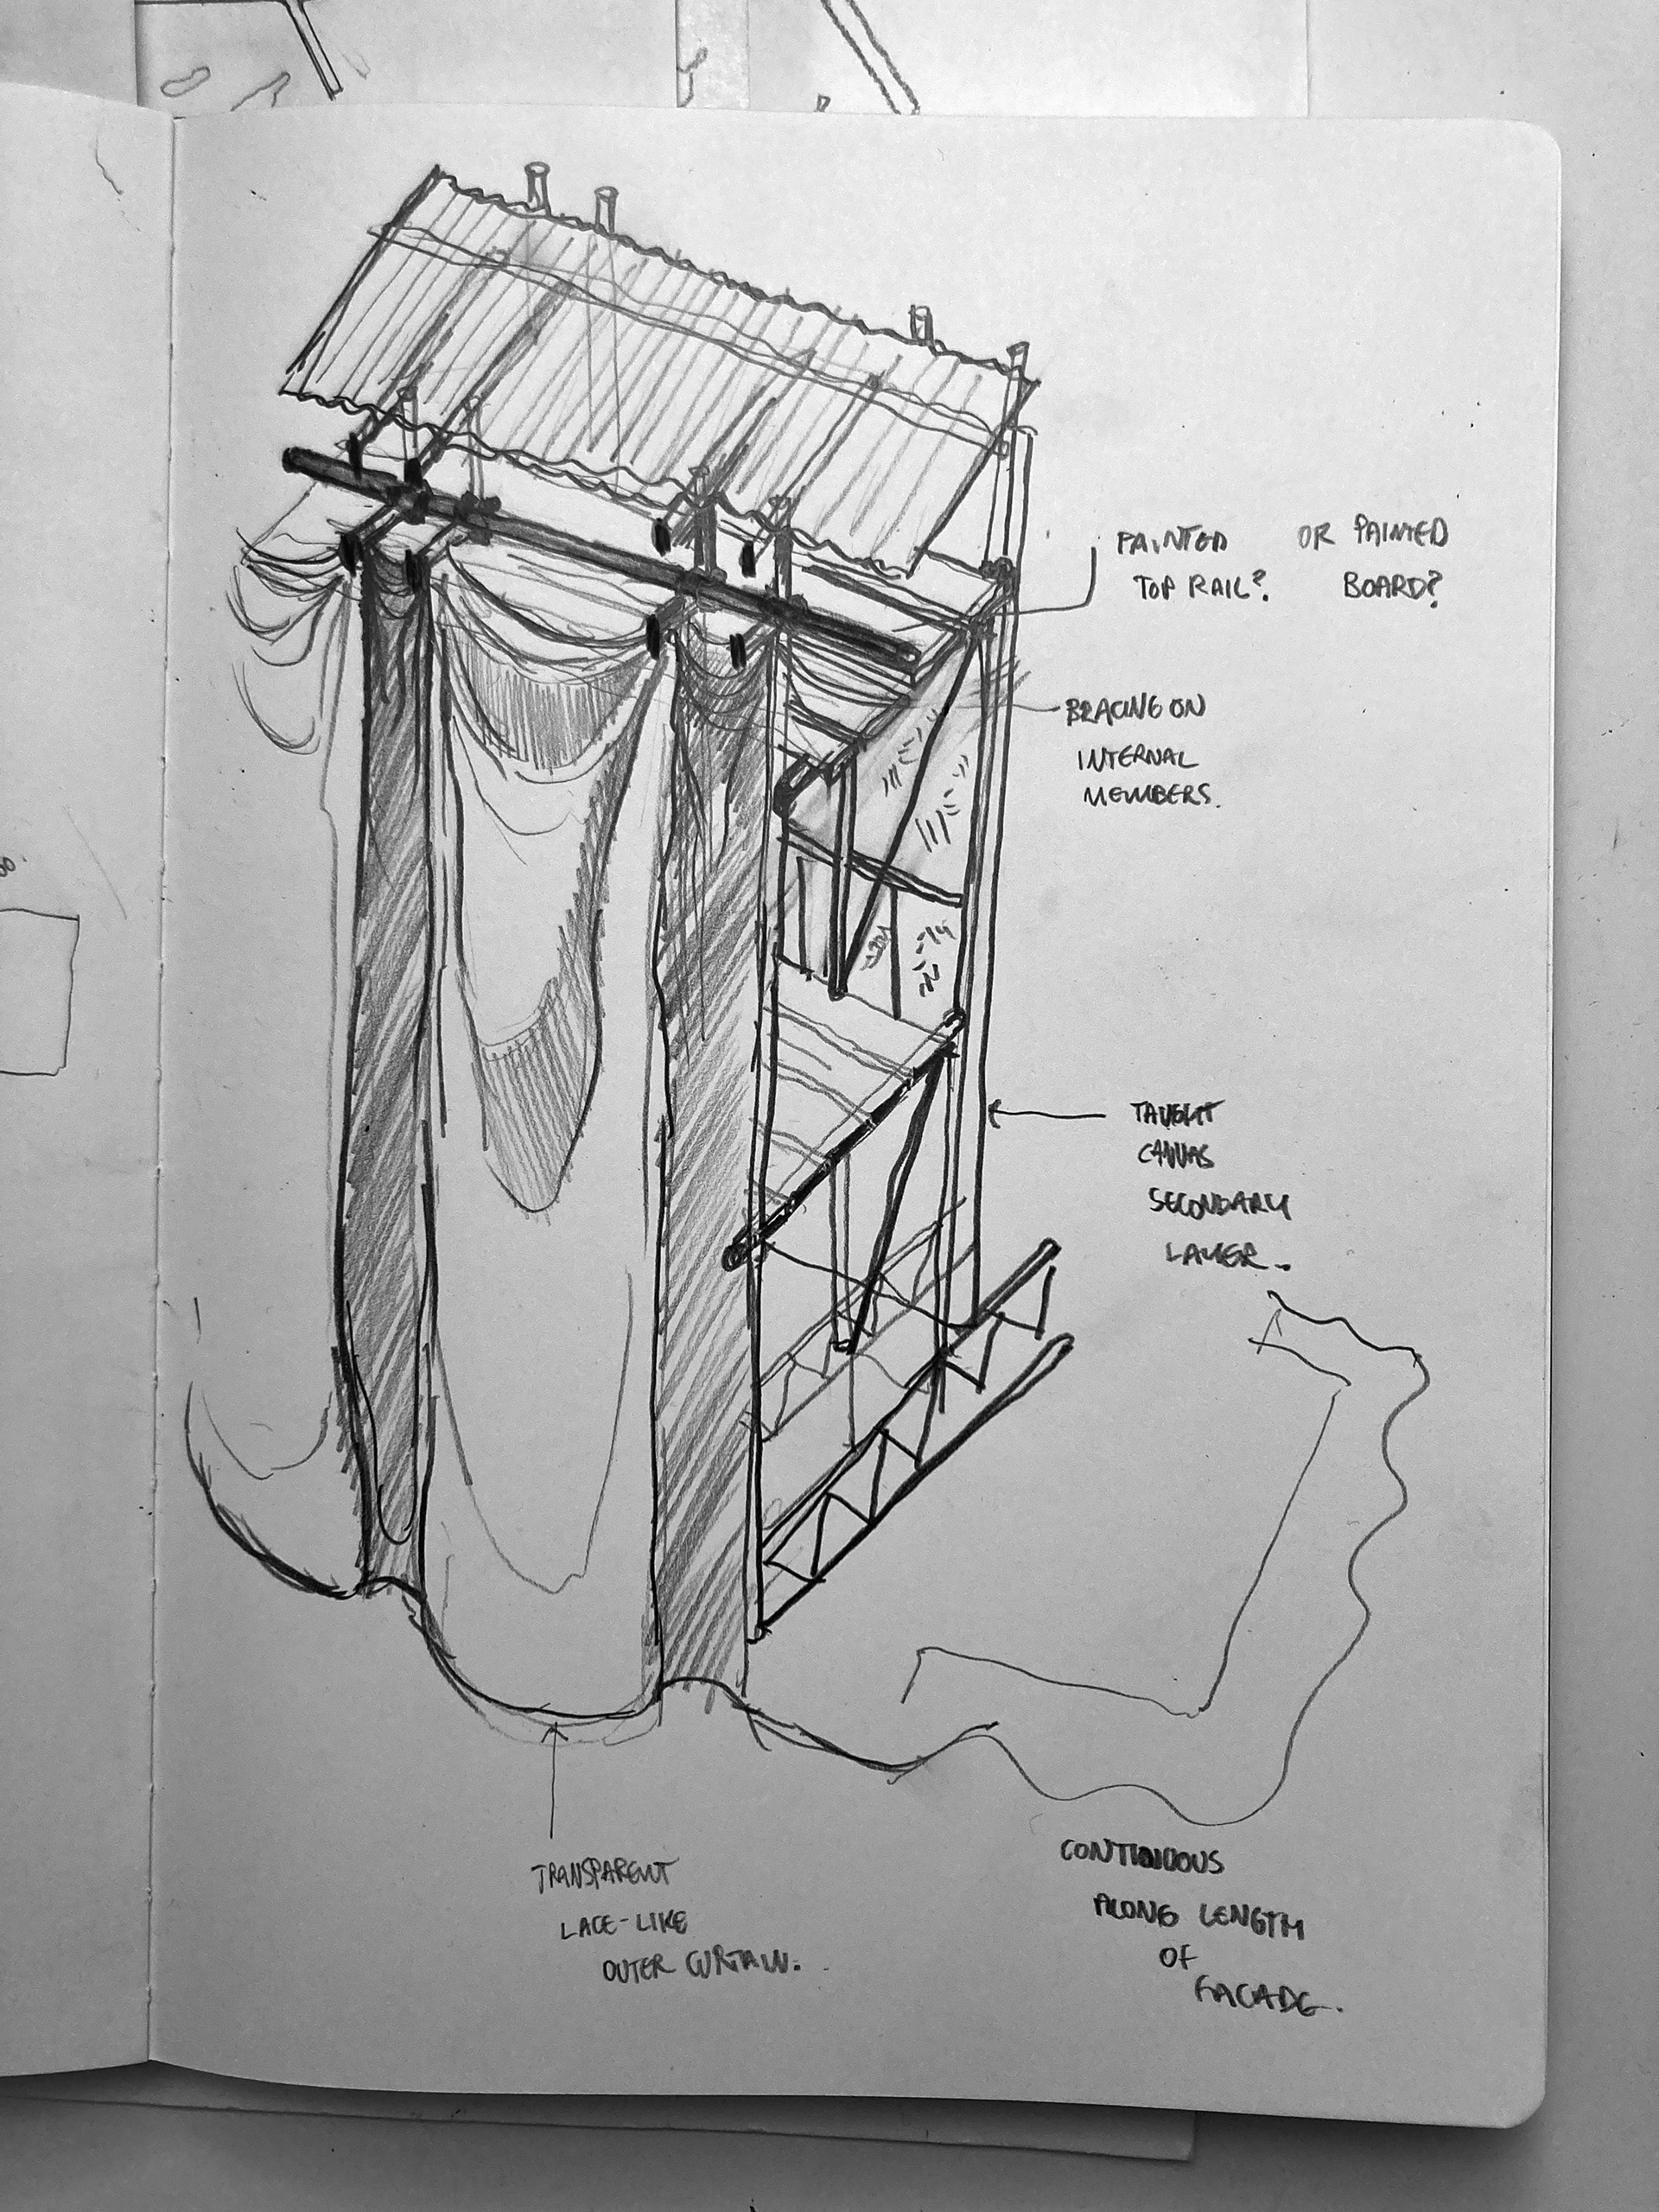 PAINTED OR PAINTED
TOP RAIL? BOARD?
BRACING ON
INTERNAL
MEMBERS.
TAUGHT
CANVAS
SECONDARY
LAYER.
TRANSPARENT
LACE-LIKE
OUTER CURTAIN.
CONTINUOUS
ALONG LENGTH
OF
FACADE.